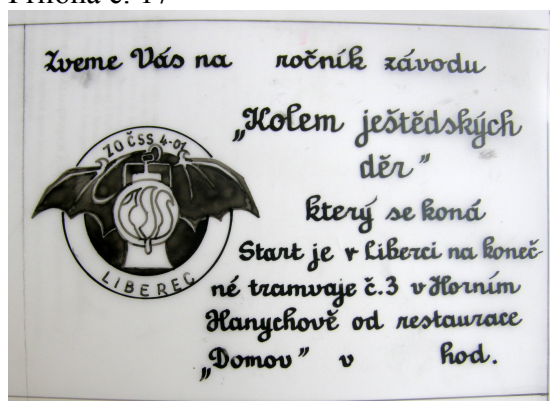 Příloha č. 17
Zveme Vás na ročník závodu
„Kolem ještědských
děr"
který se koná
Start je v Liberci na koneč-
né tramvaje č.3 v Horním
Hanychově od restaurace
„Domov" v hod.
ZO ČSS 4-01
LIBEREC